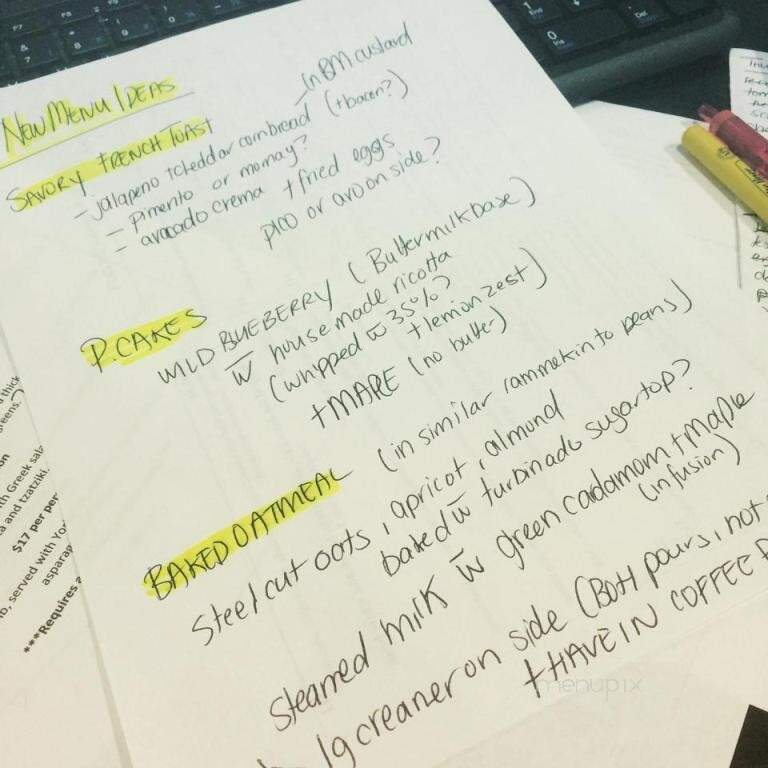 NEW MENU IDEAS
SAVORY FRENCH TOAST
in BM custard
- jalapeno + cheddar cornbread (+bacon?)
- Pimento or mornay?
- avacado crema + fried eggs
pico or avo on side?
P.CAKES
WILD BLUEBERRY (Buttermilk base)
w̄ house made ricotta
(whipped w̄ 35%?
+ lemon zest)
+MARE (no butter)
BAKED OATMEAL (in similar rammekin to beans)
Steel cut oats, apricot, almond
baked w̄ turbinado sugar top?
Steamed milk w̄ green cardamom + maple
(infusion)
lg creamer on side (BOTH pours, not
+ HAVE IN COFFEE
thick
greens,
th Greek sala
a and tzatziki.
$17 per per
, served with Yo
asparag
***Requires
menupix